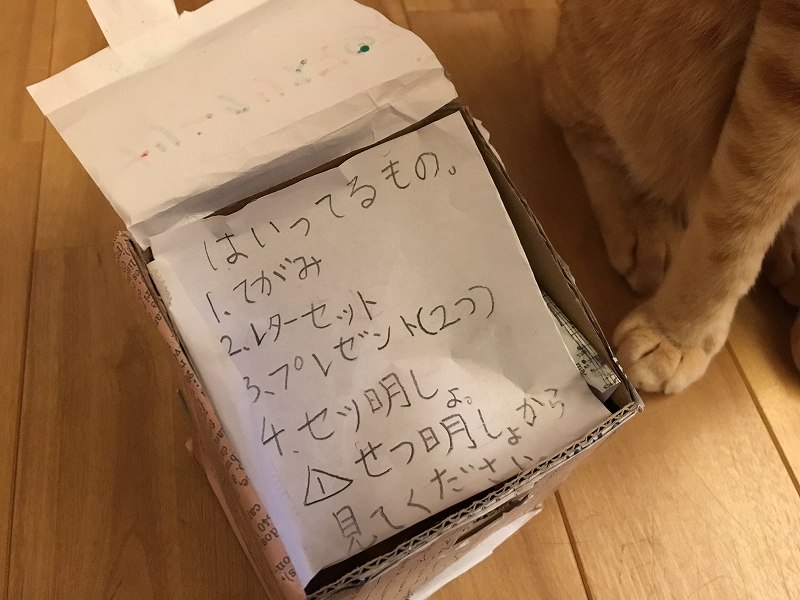 はいってるもの。
1、てがみ
2、レターセット
3、プレゼント(2つ)
4、セツ明しょ。
⚠せつ明しょから
見てください